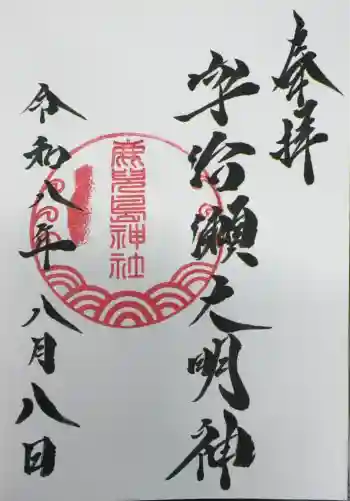 奉拝
宇治瀬大明神
鹿児島神社
令和八年八月八日